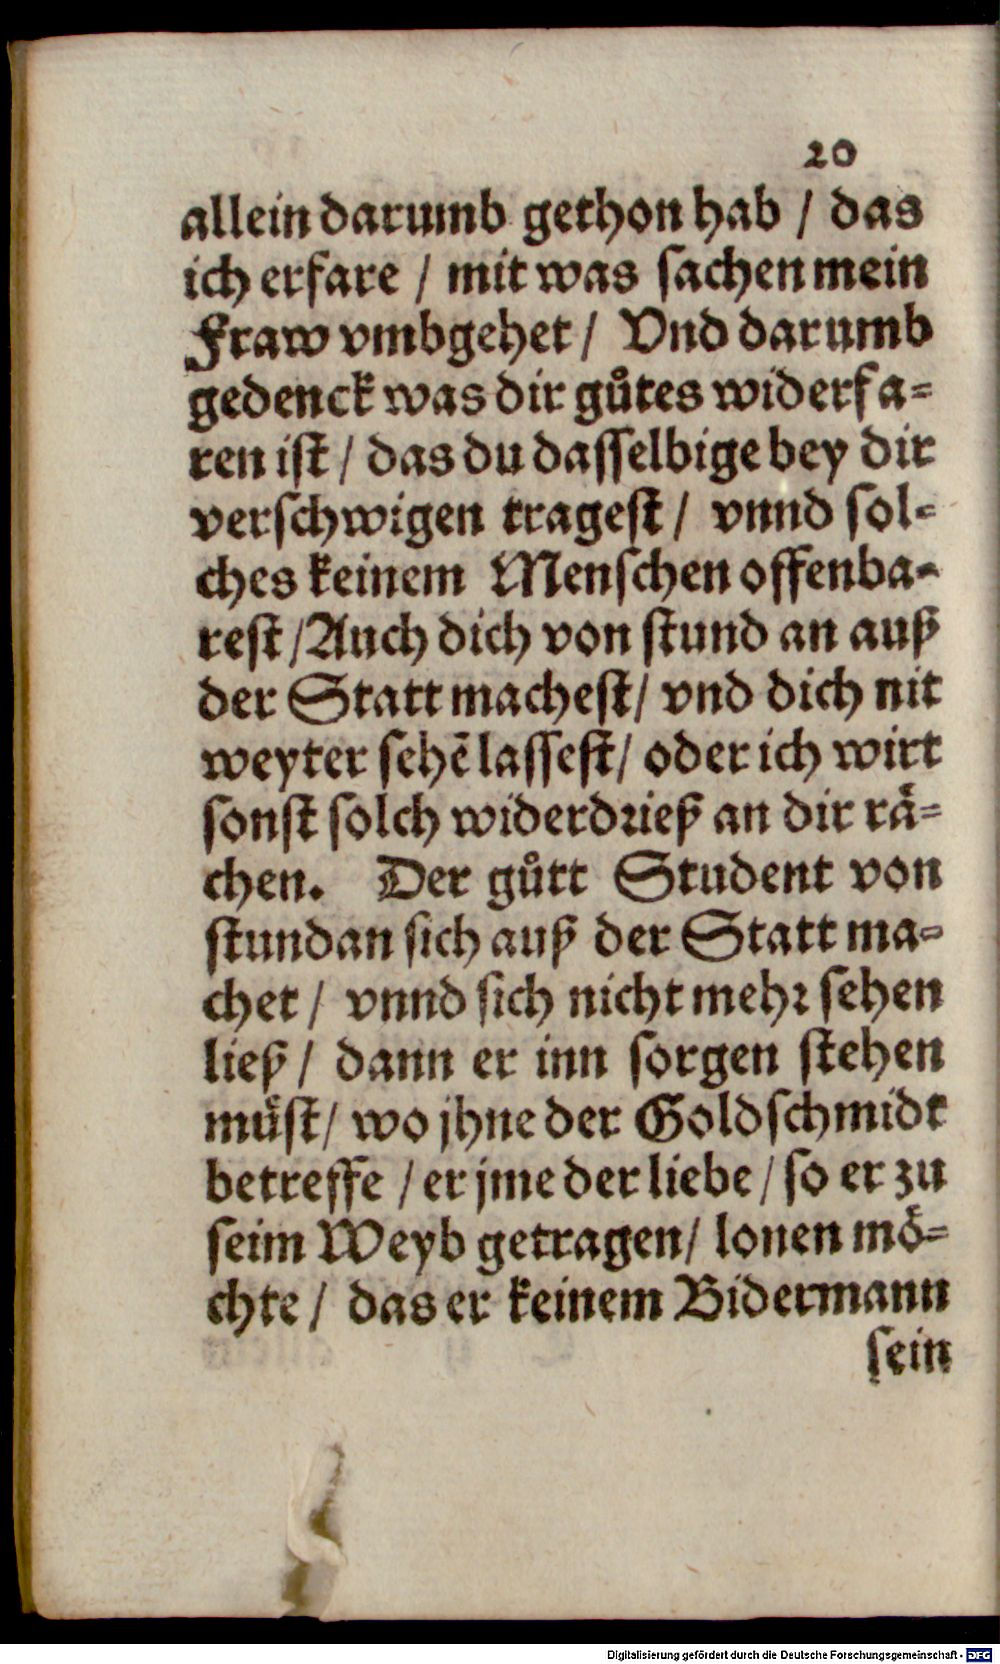 20
allein darumb gethon hab / das
ich erfare / mit was sachen mein
Fraw vmbgehet / Vnd darumb
gedenck was dir gůtes widerfa-
ren ist / das du dasselbige bey dir
verschwigen tragest / vnnd sol-
ches keinem Menschen offenba-
rest / Auch dich von stund an auß
der Statt machest / vnd dich nit
weyter sehē lassest / oder ich wirt
sonst solch widerdrieß an dir rå-
chen. Der gůtt Student von
stundan sich auß der Statt ma-
chet / vnnd sich nicht mehr sehen
ließ / dann er inn sorgen stehen
můst / wo jhne der Goldschmidt
betreffe / er jme der liebe / so er zu
seim Weyb getragen / lonen mö-
chte / das er keinem Bidermann
sein
Digitalisierung gefördert durch die Deutsche Forschungsgemeinschaft - DFG